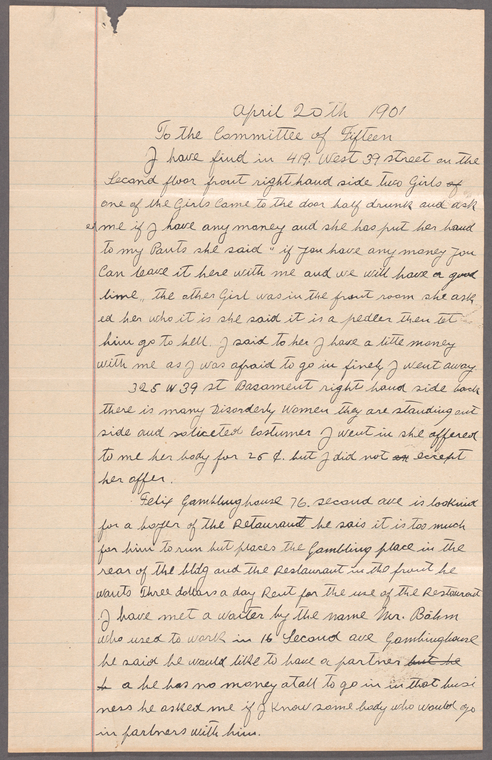 April 20th 1901
To the Committee of Fifteen
I have find in 419. West 39 street on the
Second floor front right hand side two Girls of
one of the Girls came to the door half drunk and ask
ed me if I have any money and she has put her hand
to my Pants she said " if you have any money you
Can leave it here with me and we will have a good
time „ the other Girl was in the front room she ask
ed her who it is she said it is a pedler then let
him go to hell. I said to her I have a little money
with me as I was afraid to go in finely I went away
325 W 39 st Basament right hand side back
there is many Disorderly Women they are standing out
side and soliceted costumer I went in she offered
to me her body for 25 ¢. but I did not eccept
her offer.
Felix Gambling house 76. second ave is looking
for a boyer of the Retaurant he sais it is too much
for him to run but places the Gambling place in the
rear of the bldg and the Restaurant in the front he
wants Three dollars a day Rent for the use of the Restaurant
I have met a waiter by the name Mr. Böhm
who used to work in 16 Second ave Gambling house
he said he would like to have a partner but he
a he has no money at all to go in in that busi
ness he asked me if I know some body who would go
in partners with him.